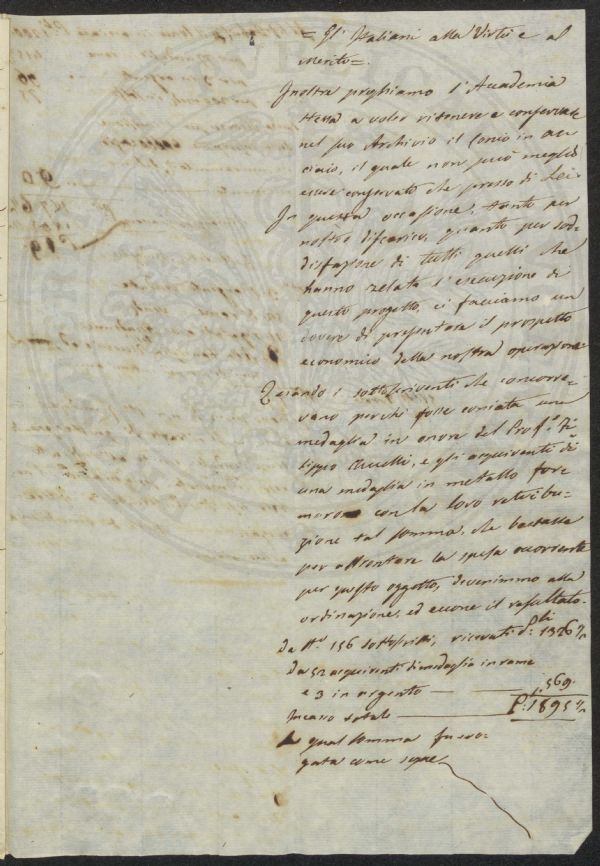 = Gl' Italiani alla Virtù e al
Merito =.
Inoltre preghiamo l'Accademia
stessa a voler ritenere e conservare
nel suo Archivio il Conio in ac
ciaio, il quale non può meglio
essere conservato che presso di Lei.
In questa occasione, tanto per
nostro discarico, quanto per sod
disfazione di tutti quelli che
hanno zelata l'esecuzione di
questo progetto, ci facciamo un
dovere di presentare il prospetto
economico della nostra operazione
Quando i sottoscriventi che concorre
vano perchè fosse coniata una
medaglia in onore del Prof. Fi
lippo, e gli acquirenti di
una medaglia in metallo for
marono con la loro retribu
zione tal somma, che bastasse
per affrontare la spesa occorrente
per questo oggetto, devenimmo alla
ordinazione, ed eccone il resultato.
Da N.° 156 sottoscritti, ricevuti P.li 1326
Da 52 acquirenti di medaglia in rame
e 3 in argento — 569.
Incasso totale — P. 1895
La qual somma fu ero
gata come segue